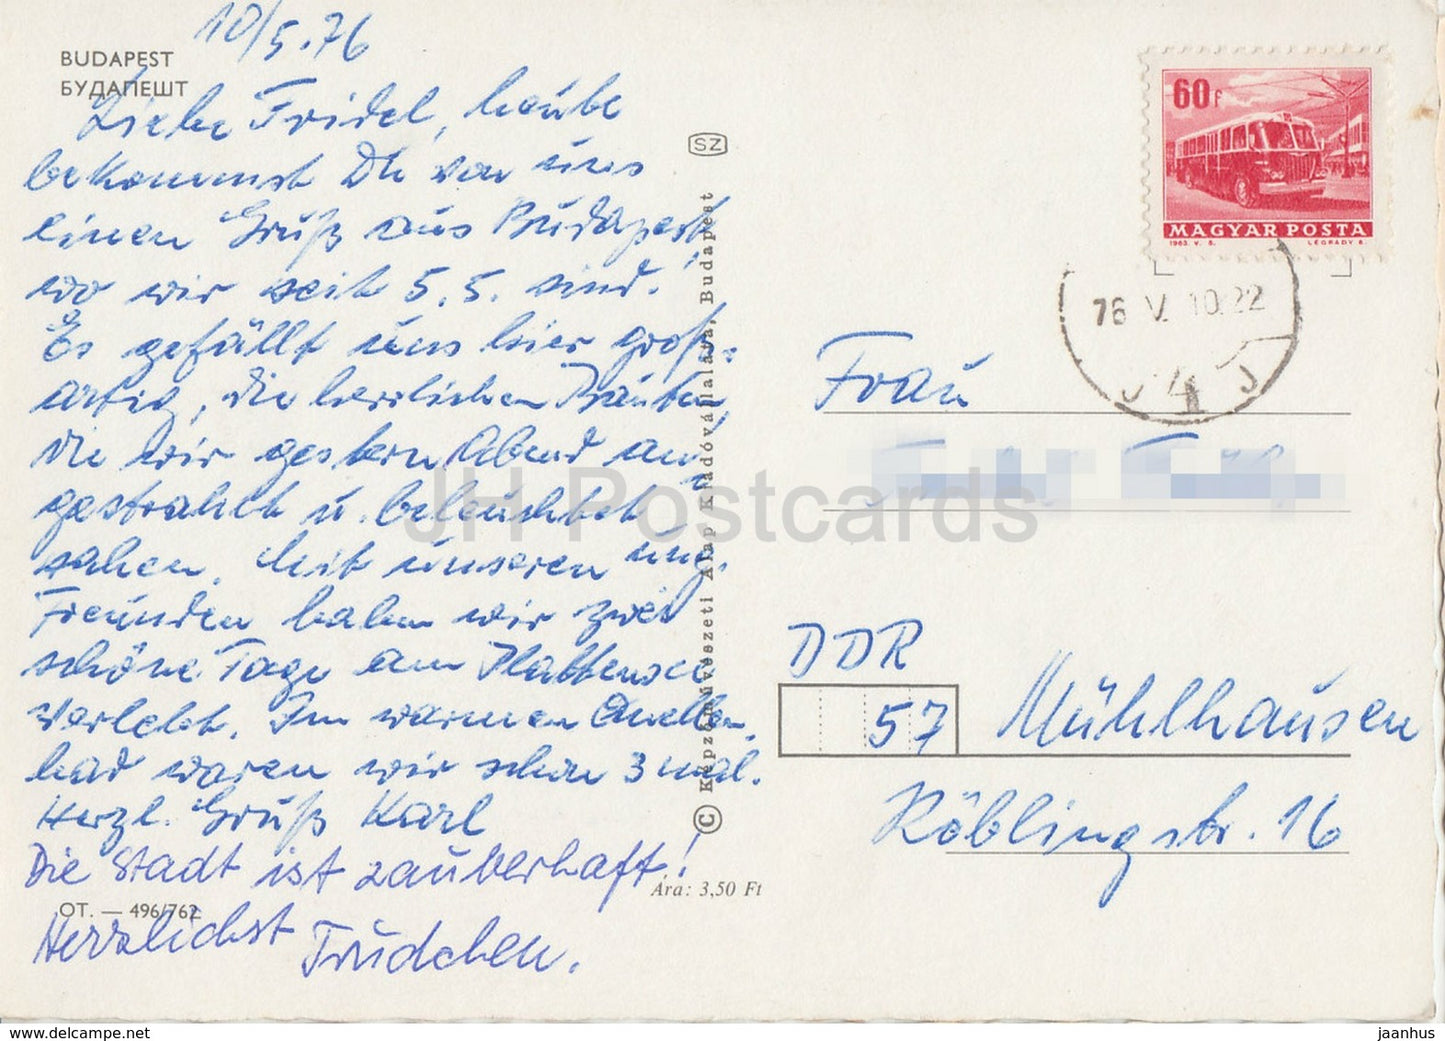 10/5.76
BUDAPEST
БУДАПЕШТ
Liebe Fridel, heute
bekommst Du von uns
einen Gruß aus Budapest,
wo wir seit 5.5. sind.
Es gefällt uns hier groß-
artig, die herrlichen Bauten,
die wir gestern Abend an-
gestrahlt u. beleuchtet
sahen. Mit unseren ung.
Freunden haben wir zwei
schöne Tage am Plattensee
verlebt. Im warmen Quellen-
bad waren wir schon 3 mal.
Herzl. Gruß Karl
Die Stadt ist zauberhaft!
OT. — 496/762
Herzlichst Trudchen.
SZ
© Képzőművészeti Alap Kiadóvállalata, Budapest
Ára: 3,50 Ft
JH Postcards
60f
MAGYAR POSTA
1963. V. 5. LÉGRÁDY S.
76 V. 10.22
4
Frau
DDR
57 Mühlhausen
Röblingstr. 16
www.delcampe.net
jaanhus